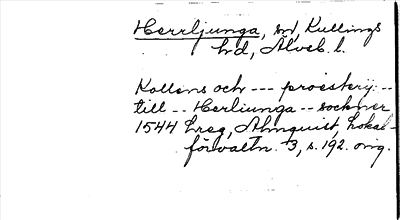 Herrljunga, sn, Kullings
hd, Älvsb. l.
Kollens och --- proesterij --
till -- Herliunga -- sockner
1544 Lreg, Almquist, Lokal-
förvaltn. 3, s. 192. orig.